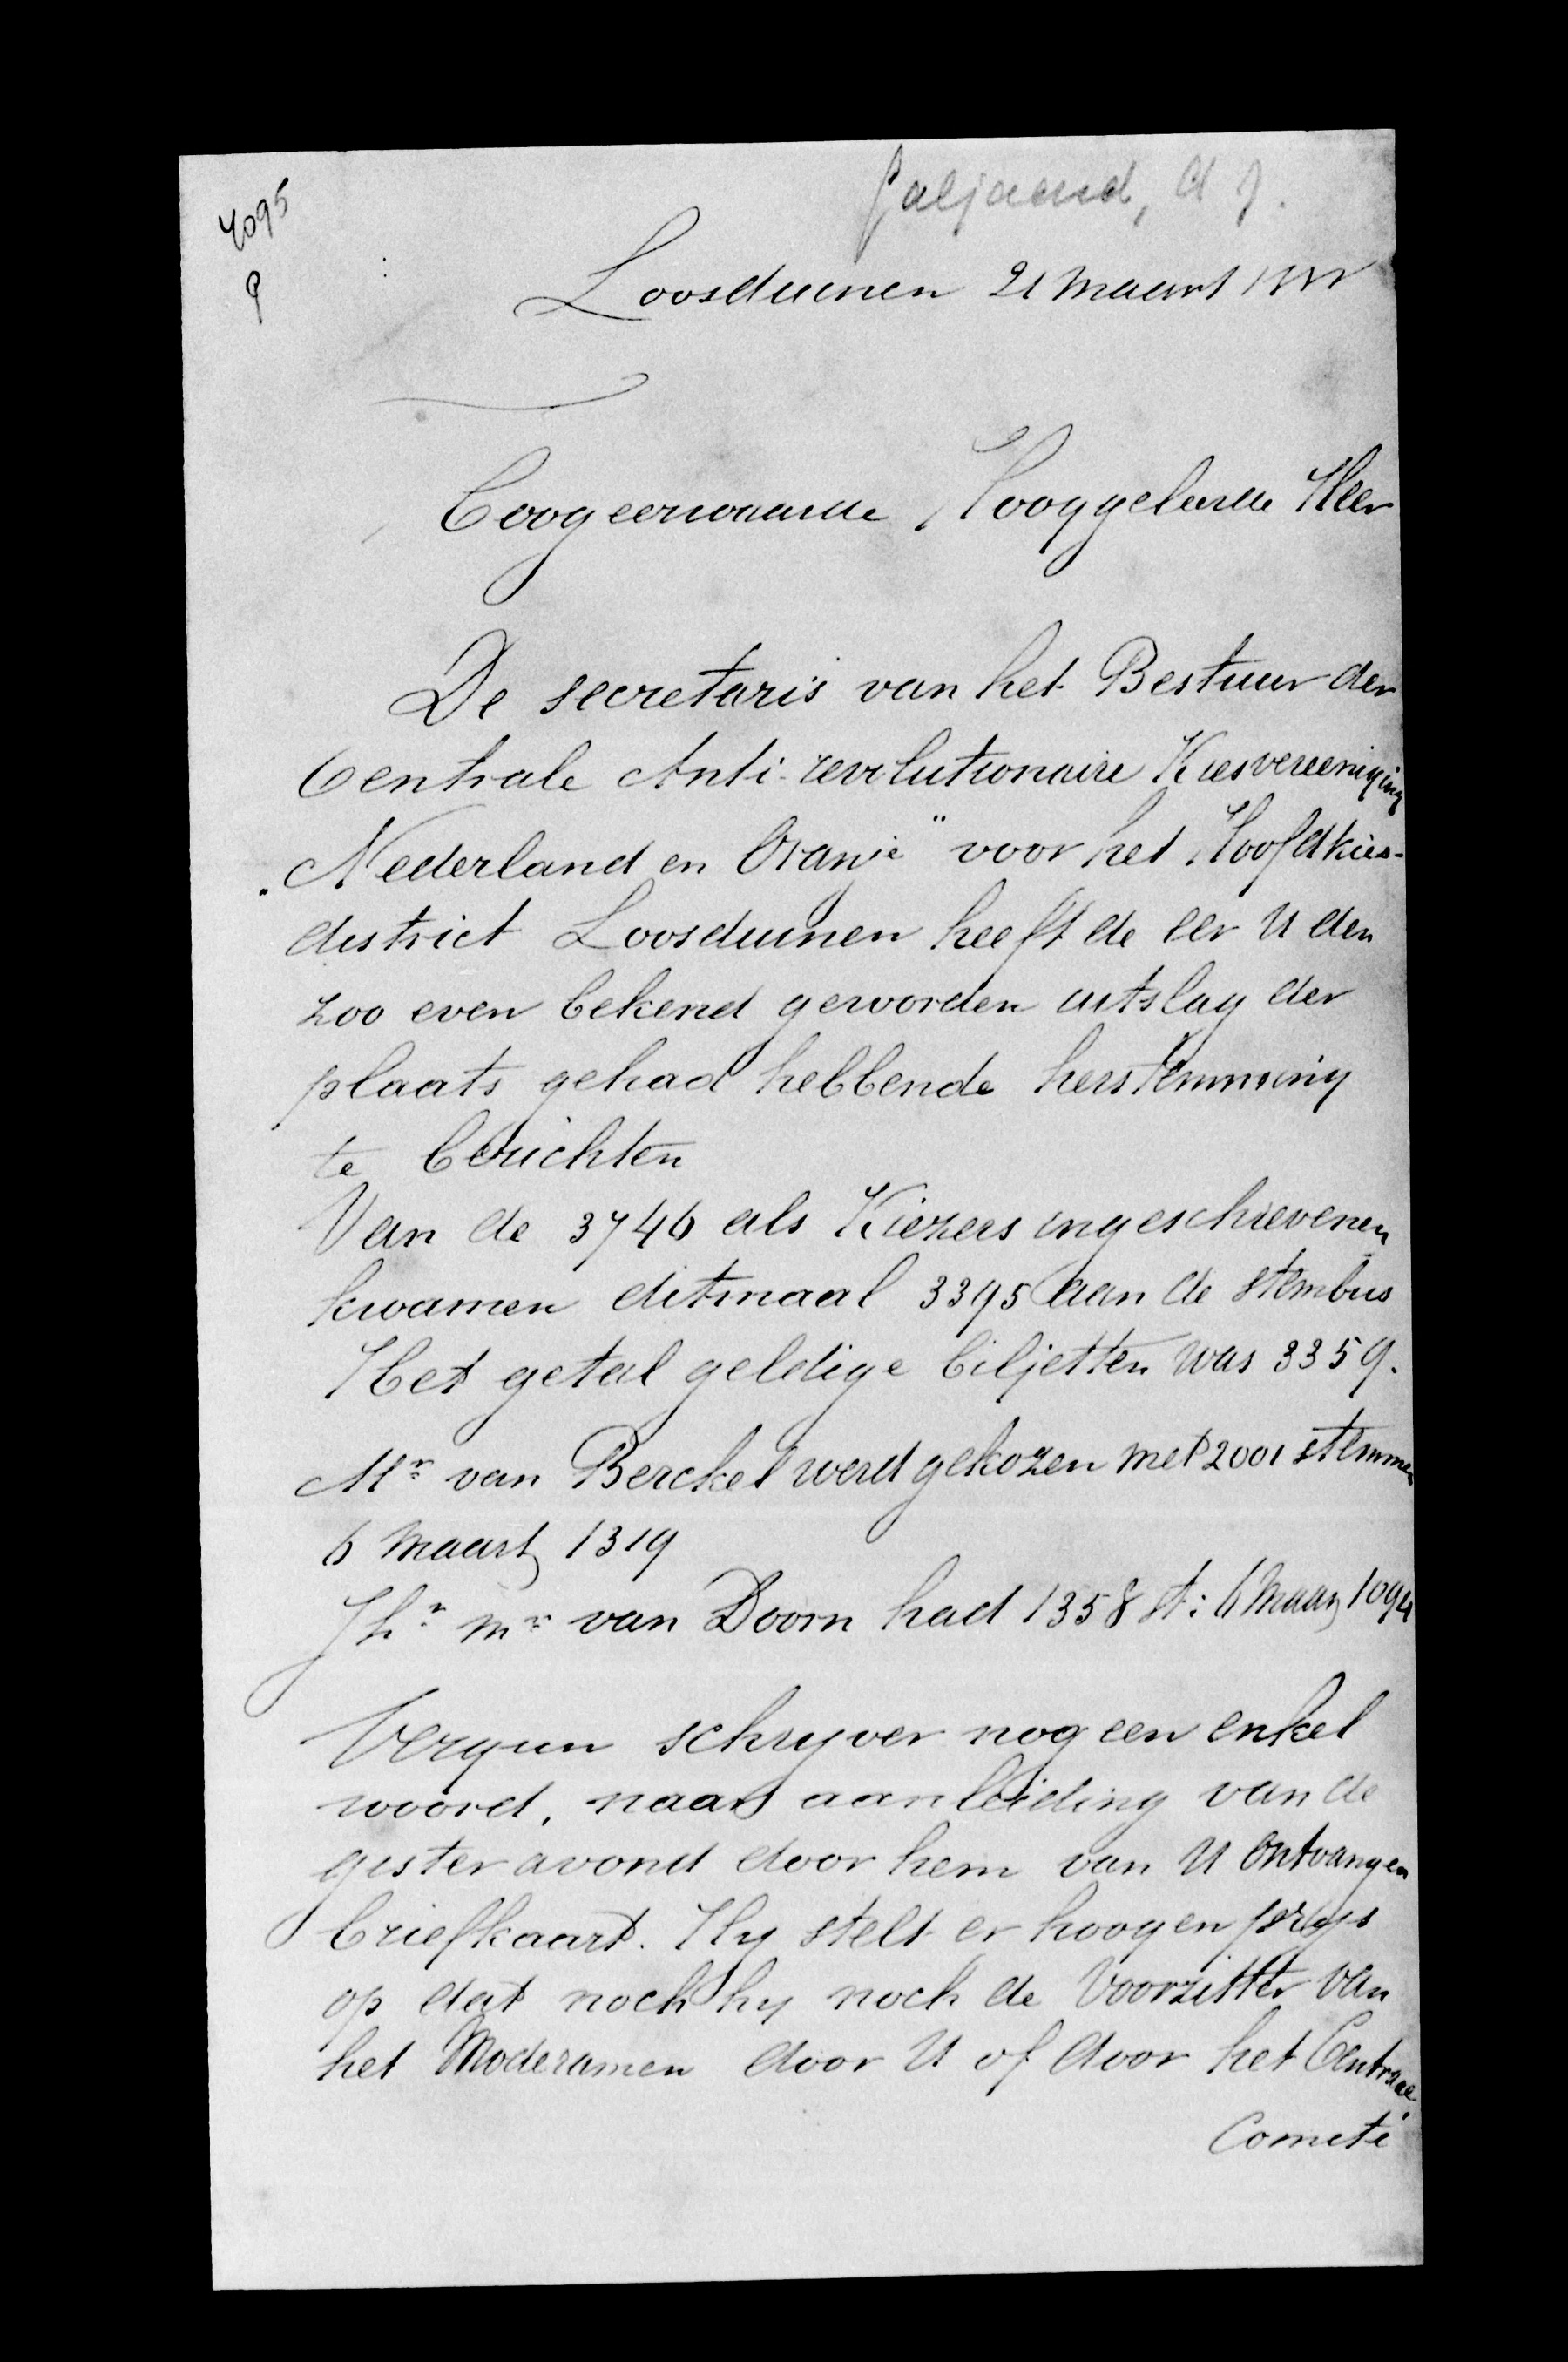 4095
9
Galjaard, A J.
Loosduinen 21 Maart 1888
Hoogeerwaarde Hooggeleerde Heer
De secretaris van het Bestuur der
Centrale Anti-revolutionaire Kiesvereeniging
"Nederland en Oranje" voor het Hoofdkies-
district Loosduinen heeft de eer U den
zoo even bekend geworden uitslag der
plaats gehad hebbende herstemming
te berichten
Van de 3746 als Kiezers ingeschrevenen
kwamen ditmaal 3395 aan de stembus
Het getal geldige biljetten was 3359.
Mr van Berckel werd gekozen met 2001 stemmen
6 Maart 1319
Jhr mr van Doorn had 1358 st: 6 Maart 1094
Vergun schryver nog een enkel
woord, naar aanleiding van de
gister avond door hem van U ontvangen
briefkaart. Hy stelt er hoogen prys
op dat noch hy noch de Voorzitter van
het Moderamen door U of door het Centraal
Comité